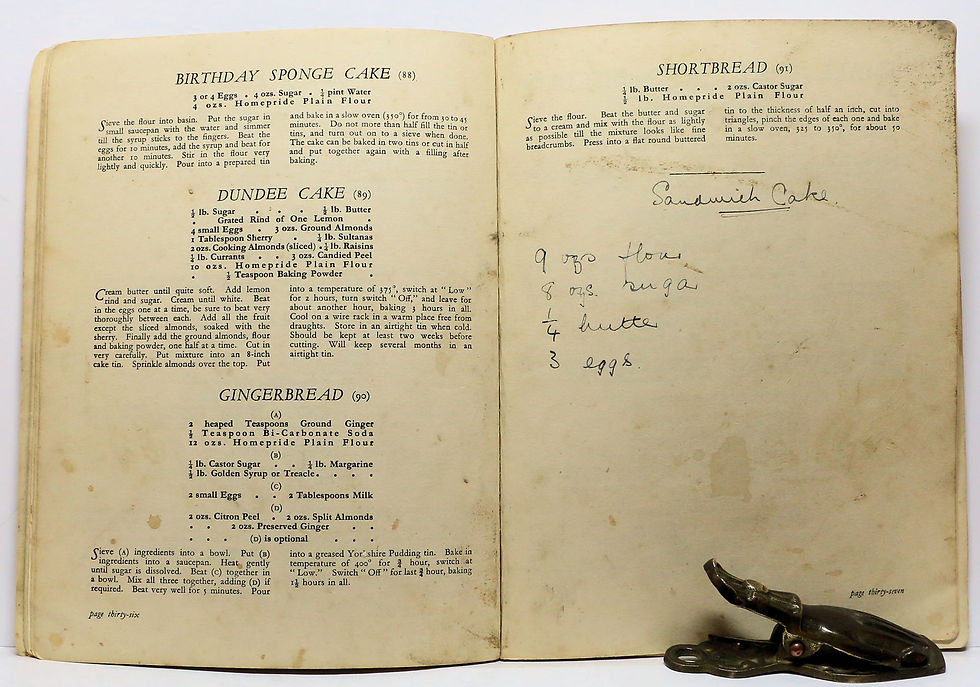 BIRTHDAY SPONGE CAKE (88)
3 or 4 Eggs . 4 ozs. Sugar . ¼ pint Water
4 ozs. Homepride Plain Flour
Sieve the flour into basin. Put the sugar in
small saucepan with the water and simmer
till the syrup sticks to the fingers. Beat the
eggs for 10 minutes, add the syrup and beat for
another 10 minutes. Stir in the flour very
lightly and quickly. Pour into a prepared tin
and bake in a slow oven (350°) for from 30 to 45
minutes. Do not more than half fill the tin or
tins, and turn out on to a sieve when done.
The cake can be baked in two tins or cut in half
and put together again with a filling after
baking.
DUNDEE CAKE (89)
½ lb. Sugar . . . ½ lb. Butter
. Grated Rind of One Lemon .
4 small Eggs . 3 ozs. Ground Almonds
1 Tablespoon Sherry . ¼ lb. Sultanas
2 ozs. Cooking Almonds (sliced) . ¼ lb. Raisins
¼ lb. Currants . . 3 ozs. Candied Peel
10 ozs. Homepride Plain Flour
. ½ Teaspoon Baking Powder .
Cream butter until quite soft. Add lemon
rind and sugar. Cream until white. Beat
in the eggs one at a time, be sure to beat very
thoroughly between each. Add all the fruit
except the sliced almonds, soaked with the
sherry. Finally add the ground almonds, flour
and baking powder, one half at a time. Cut in
very carefully. Put mixture into an 8-inch
cake tin. Sprinkle almonds over the top. Put
into a temperature of 375°, switch at "Low"
for 2 hours, turn switch "Off," and leave for
about another hour, baking 3 hours in all.
Cool on a wire rack in a warm place free from
draughts. Store in an airtight tin when cold.
Should be kept at least two weeks before
cutting. Will keep several months in an
airtight tin.
GINGERBREAD (90)
(A)
2 heaped Teaspoons Ground Ginger
½ Teaspoon Bi-Carbonate Soda
12 ozs. Homepride Plain Flour
(B)
¼ lb. Castor Sugar . . ¼ lb. Margarine
½ lb. Golden Syrup or Treacle . . . .
(C)
2 small Eggs . . 2 Tablespoons Milk
(D)
2 ozs. Citron Peel . 2 ozs. Split Almonds
. . 2 ozs. Preserved Ginger . .
. . . (D) is optional . . .
Sieve (A) ingredients into a bowl. Put (B)
ingredients into a saucepan. Heat gently
until sugar is dissolved. Beat (C) together in
a bowl. Mix all three together, adding (D) if
required. Beat very well for 5 minutes. Pour
into a greased Yorkshire Pudding tin. Bake in
temperature of 400° for ¾ hour, switch at
"Low." Switch "Off" for last ¾ hour, baking
1½ hours in all.
page thirty-six
SHORTBREAD (91)
¼ lb. Butter . . . 2 ozs. Castor Sugar
½ lb. Homepride Plain Flour
Sieve the flour. Beat the butter and sugar
to a cream and mix with the flour as lightly
as possible till the mixture looks like fine
breadcrumbs. Press into a flat round buttered
tin to the thickness of half an inch, cut into
triangles, pinch the edges of each one and bake
in a slow oven, 325 to 350°, for about 50
minutes.
Sandwich Cake.
9 ozs flour
8 ozs. sugar
¼ butter
3 eggs.
page thirty-seven